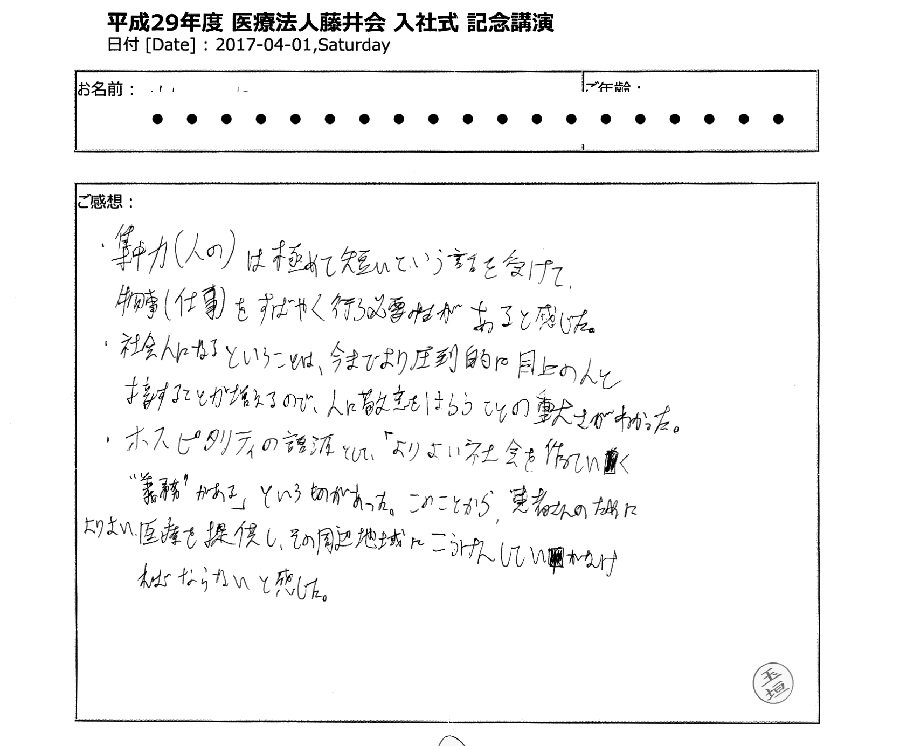 平成29年度 医療法人藤井会 入社式 記念講演
日付 [Date] : 2017-04-01,Saturday
お名前：
ご年齢：
ご感想：
・集中力(人の)は極めて短いという話を受けて、
物事(仕事)をすばやく行う必要性があると感じた。
・社会人になるということは、今までより圧倒的に目上の人と
接することが増えるので、人に敬意をはらうことの重大さがわかった。
・ホスピタリティの語源として、「よりよい社会を作っていく
"義務"がある」というものがあった。このことから、患者さんのために
よりよい医療を提供し、その周辺地域にこうけんしていかなけ
ればならないと感じた。
玉垣